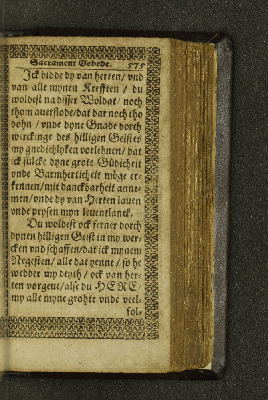 Sacrament Gebede. 575
Jck bidde dy van herten/ vnd
van alle mynen Krefften / du
woldest na disser Woldat/ noch
thom auerflode/dat dar noch tho
dohn / vnde dyne Gnade dorch
werckinge des hilligen Geistes
my gnedichlyken vorlehnen/ dat
ick sülcke dyne grote Güdicheit
vnde Barmherticheit möge er-
kennen/mit danckbarheit anne-
men/vnde dy van Herten lauen
vnde prysen myn leuentlanck.
Du woldest ock ferner dorch
dynen hilligen Geist in my wer-
cken vnd schaffen/dat ick mynem
Negesten/ alle dat yenne / so he
wedder my deyth / ock van her-
ten vorgeue/alse du HERE
my alle myne grohte vnde veel-
fol-